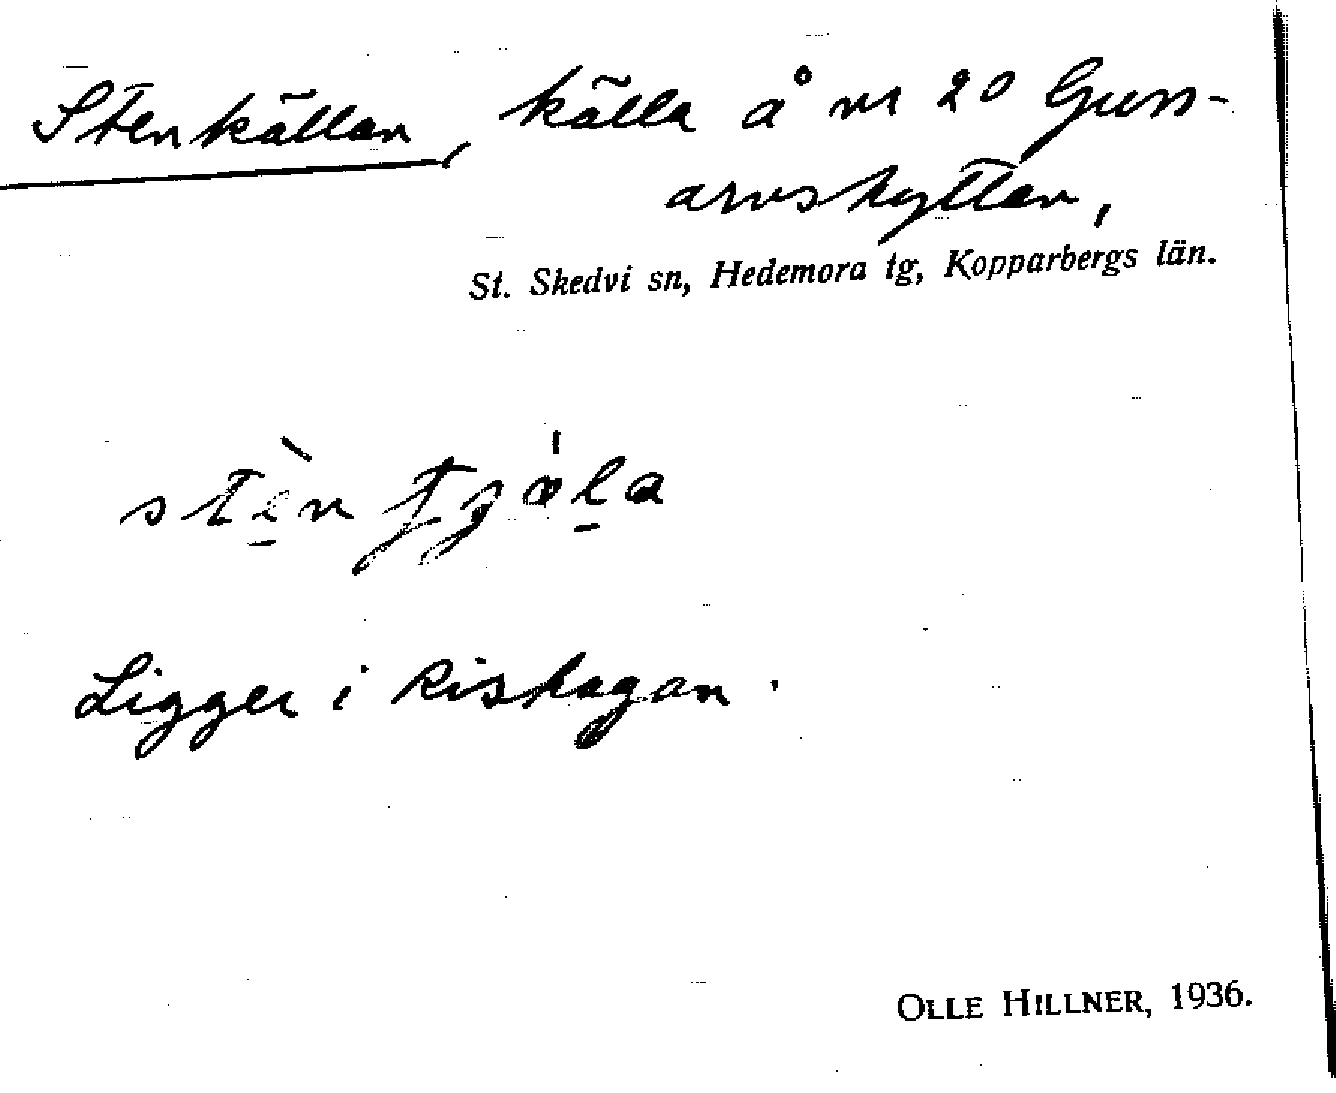 Stenkällan, källa å nr 20 Guss-
arvshyttan,
St. Skedvi sn, Hedemora tg, Kopparbergs län.
Ligger i Rishagan.
OLLE HILLNER, 1936.